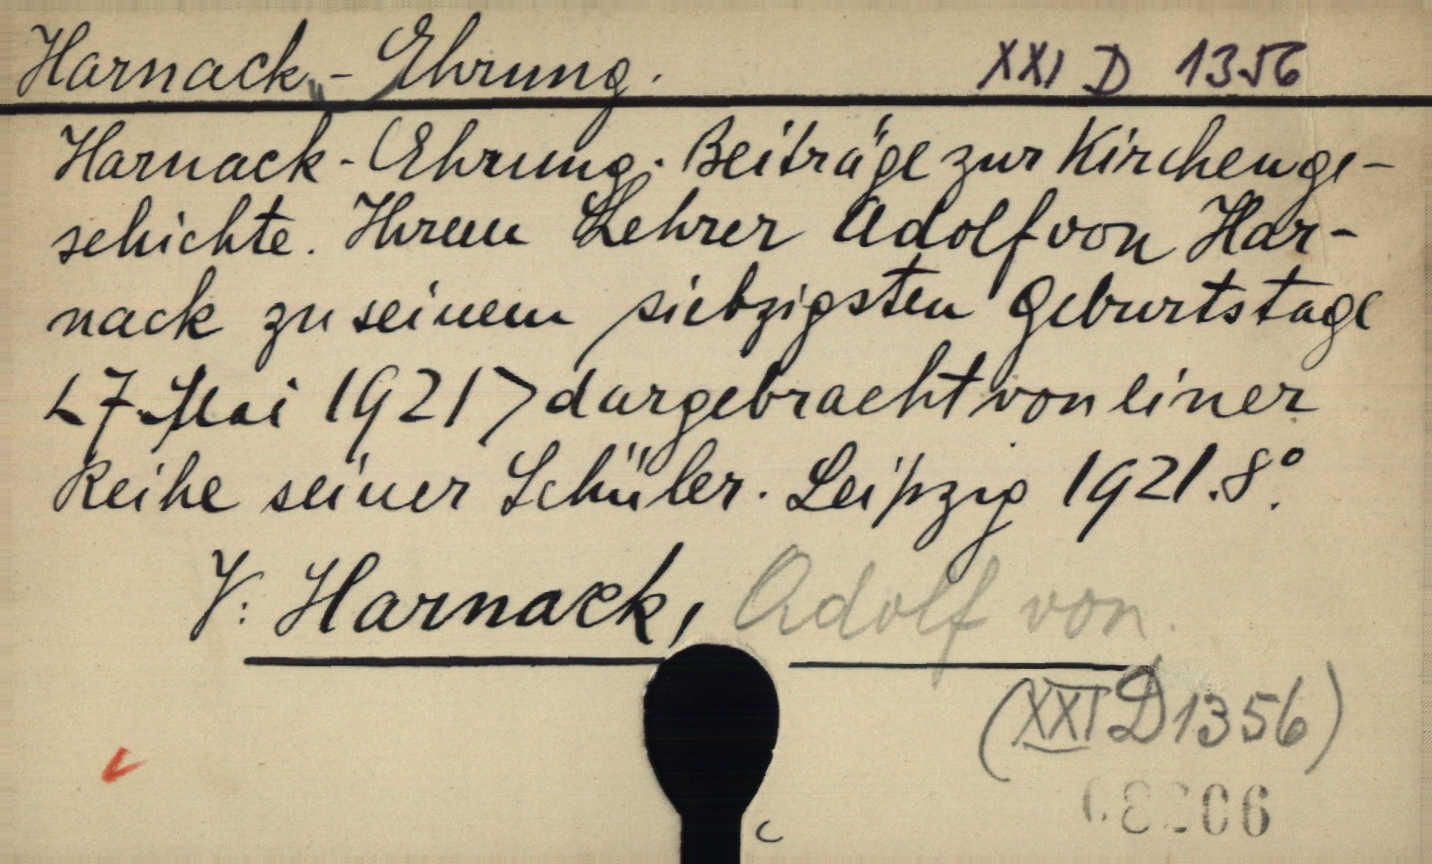 Harnack - Ehrung.
XXI D 1356
Harnack - Ehrung. Beiträge zur Kirchenge-
schichte. Ihrem Lehrer Adolf von Har-
nack zu seinem siebzigsten Geburtstage
<7. Mai 1921> dargebracht von einer
Reihe seiner Schüler. Leipzig 1921. 8°.
V: Harnack, Adolf von.
(XXI D 1356)